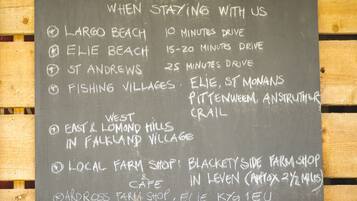 WHEN STAYING WITH US
LARGO BEACH 10 MINUTES DRIVE
ELIE BEACH 15-20 MINUTES DRIVE
ST ANDREWS 25 MINUTES DRIVE
FISHING VILLAGES: ELIE, ST MONANS
PITTENWEEM, ANSTRUTHER
CRAIL
WEST
EAST & LOMOND HILLS
IN FALKLAND VILLAGE
LOCAL FARM SHOP: BLACKETYSIDE FARM SHOP
& CAFE
IN LEVEN (APTOX 2 1/2 MILES)
ARDROSS FARM SHOP, ELIE KY9 1EU